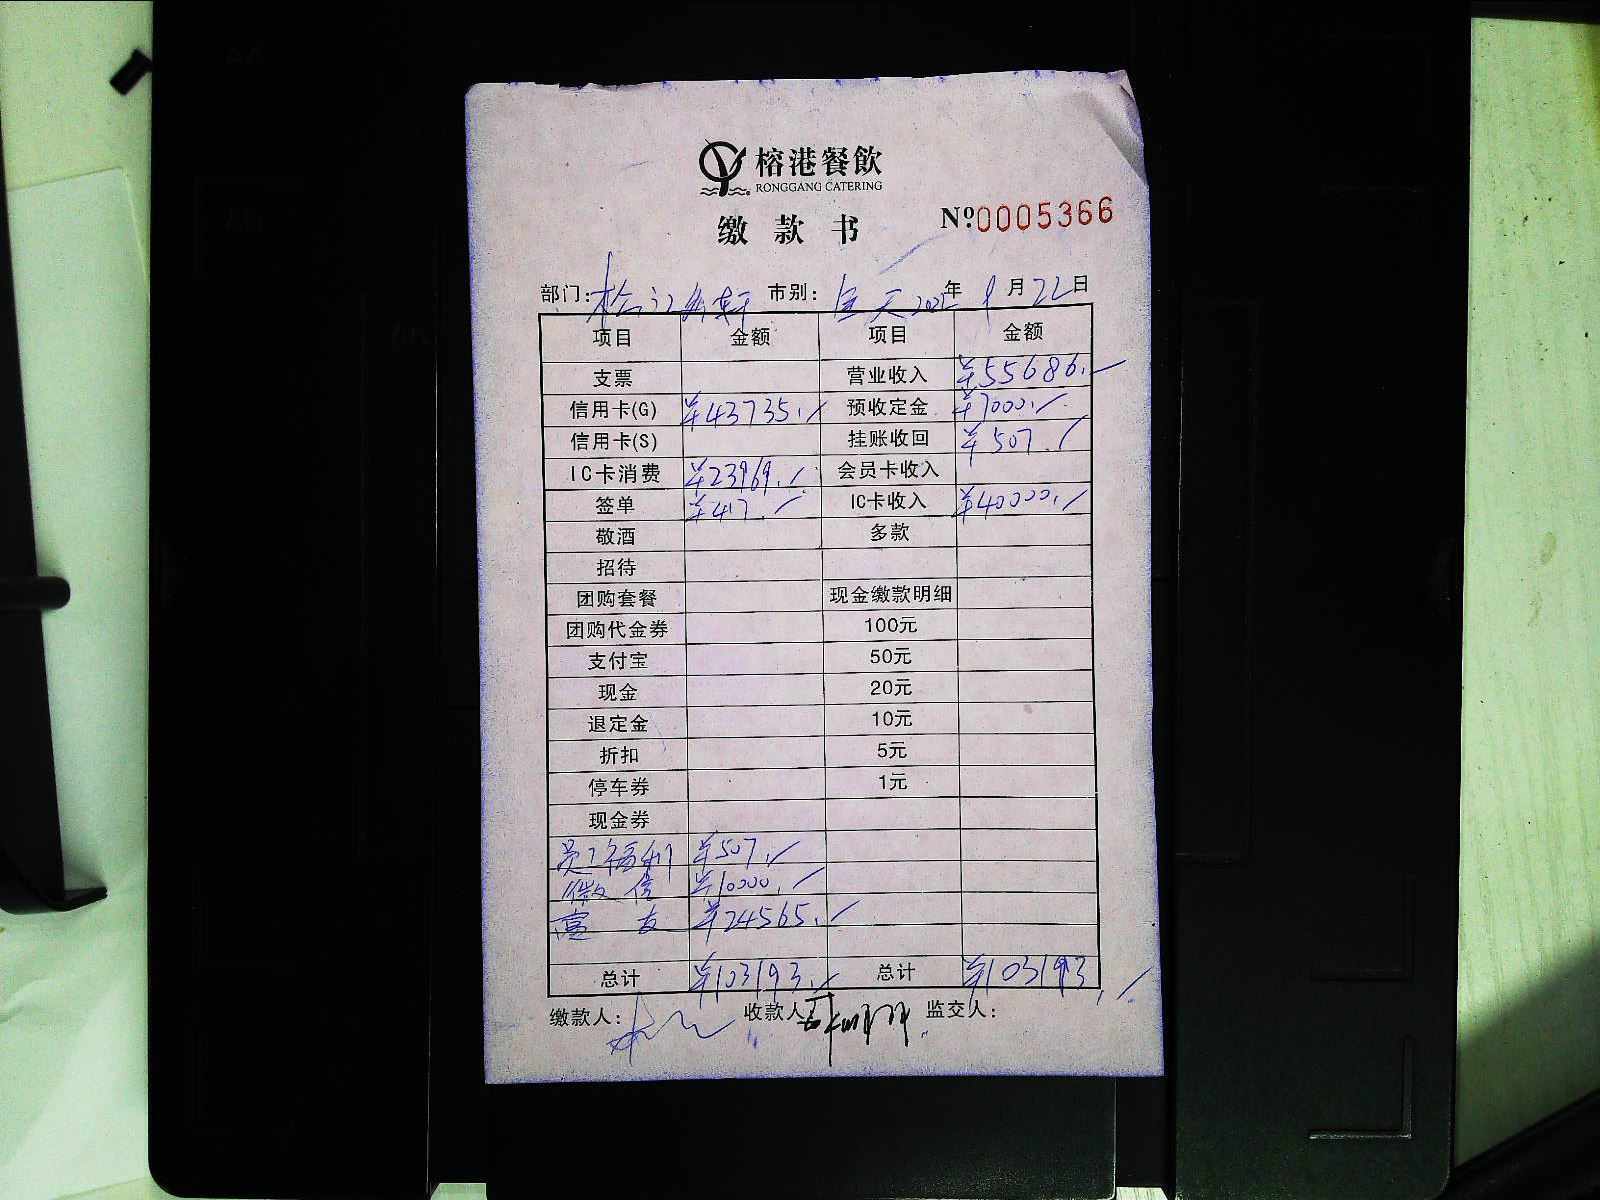 榕港餐飲
RONGGANG CATERING
缴款书 Nº 0005366
部门: 松江 轩 市别: 全天 年 9月22日
项目 金额 项目 金额
支票 营业收入 ¥55686.
信用卡(G) ¥43735. 预收定金 ¥7000.
信用卡(S) 挂账收回 ¥507.
IC卡消费 ¥23969. 会员卡收入
签单 ¥417. IC卡收入 ¥40000.
敬酒 多款
招待
团购套餐 现金缴款明细
团购代金券 100元
支付宝 50元
现金 20元
退定金 10元
折扣 5元
停车券 1元
现金券
员工福利 ¥507.
微信 ¥10000.
富友 ¥24565.
总计 ¥103193. 总计 ¥103193.
缴款人: 收款人 监交人: